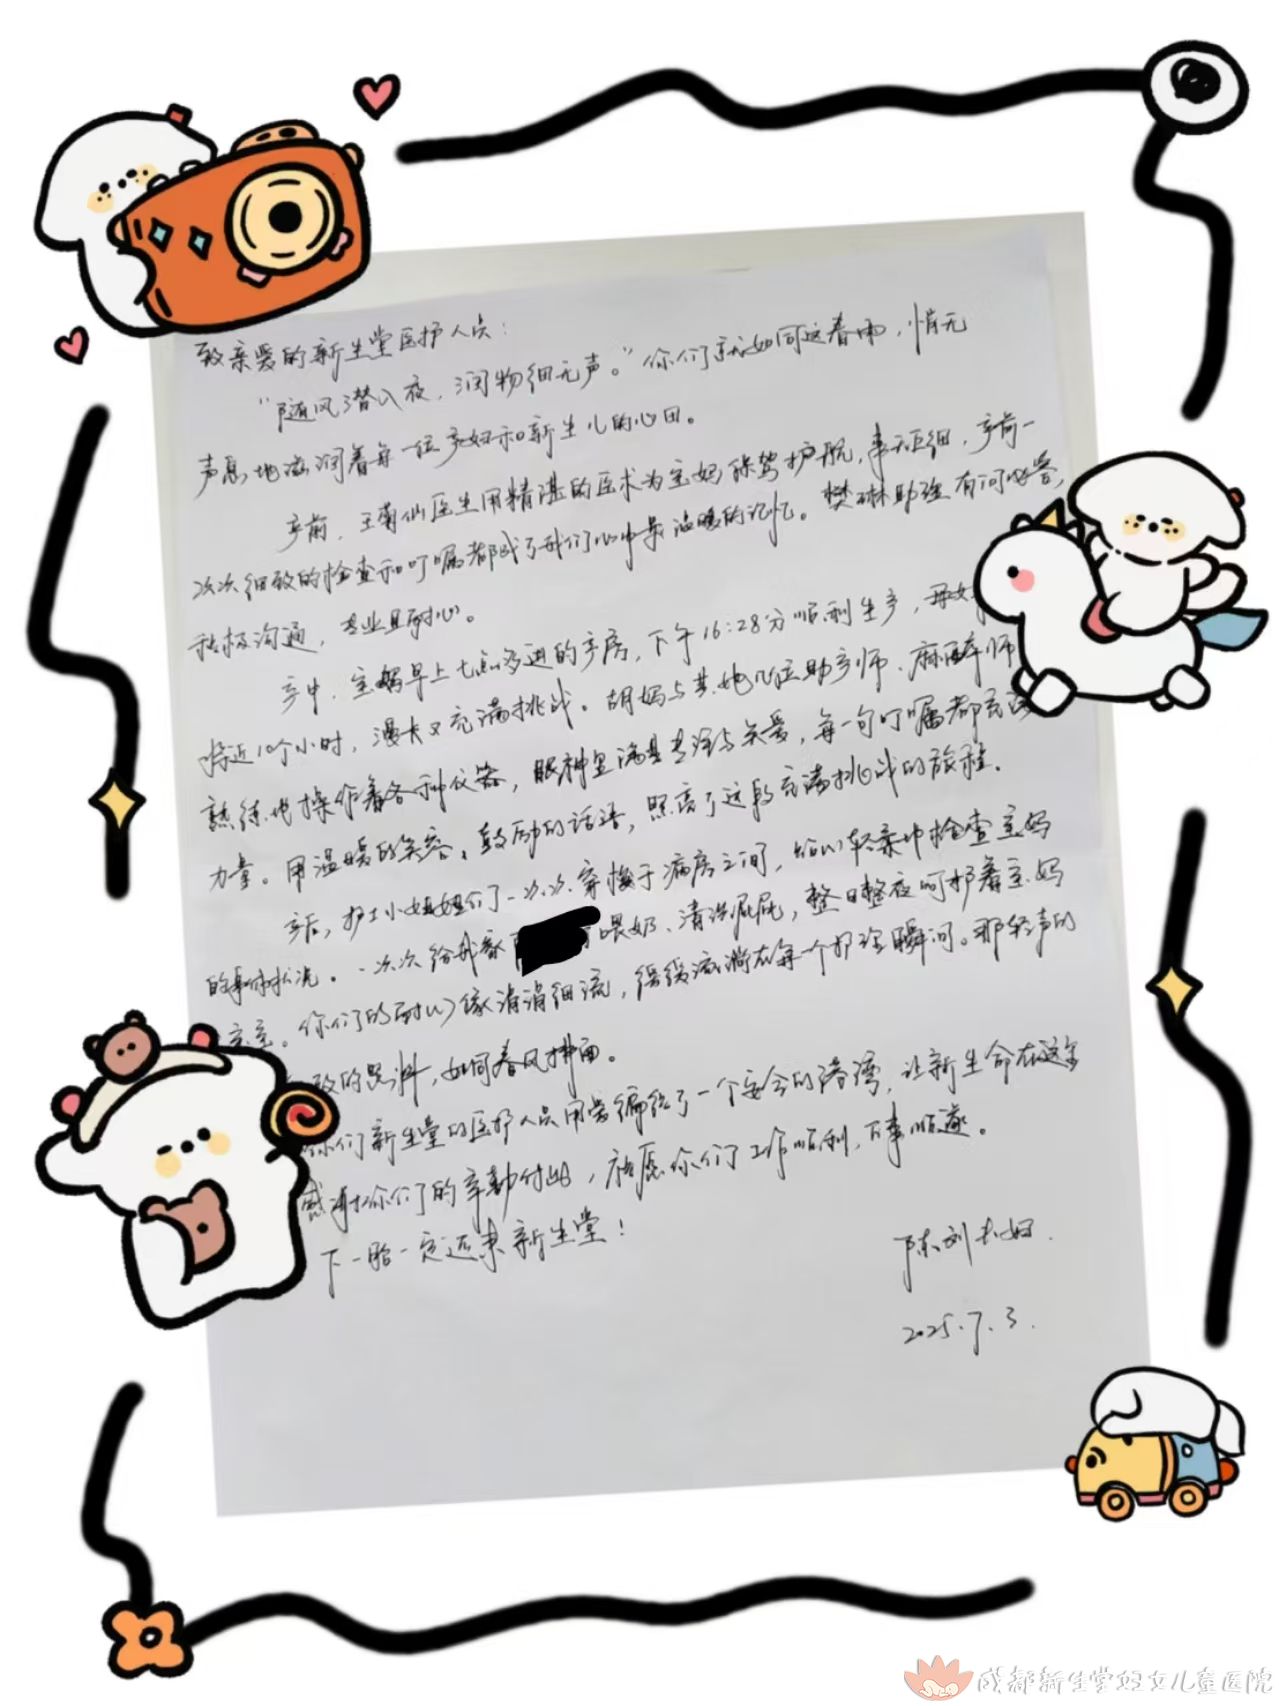 致亲爱的新生堂医护人员：
“随风潜入夜，润物细无声。”你们就如同这春雨，悄无
声息地滋润着每一位产妇和新生儿的心田。
产前，王菊仙医生用精湛的医术为宝妈保驾护航，事无巨细，产前一
次次细致的检查和叮嘱都成了我们心中最温暖的记忆。樊琳助理有问必答，
积极沟通，专业且耐心。
产中，宝妈早上七点多进的产房，下午16:28分顺利生产，
接近10个小时，漫长又充满挑战。胡妈与其她几位助产师、麻醉师
熟练地操作着各种仪器，眼神里满是专注与关爱，每一句叮嘱都充满
力量。用温暖的笑容、鼓励的话语，照亮了这段充满挑战的旅程。
产后，护士小姐姐们一次次穿梭于病房之间，细心轻柔地检查宝妈
的身体状况。一次次给我家 喂奶、清洗屁屁，整日整夜呵护着宝妈
宝宝。你们的耐心像涓涓细流，缓缓流淌在每一个护理瞬间。那轻声的
致的照料，如同春风拂面。
你们新生堂的医护人员用爱编织了一个安全的港湾，让新生命在这里
感谢你们的辛勤付出，祝愿你们工作顺利，万事顺遂。
下一胎一定还来新生堂！
陈刘夫妇
2025.7.3.
成都新生堂妇女儿童医院